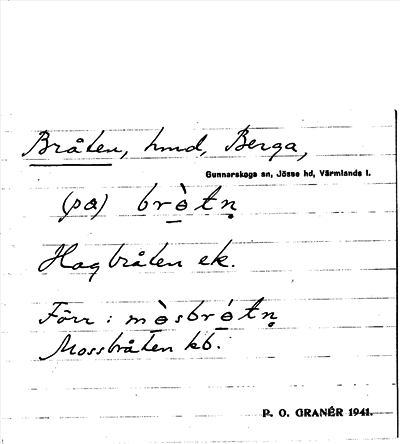 Bråten, hmd, Berga,
Gunnarskogs sn, Jösse hd, Värmlands l.
(på) brò̱tṇ
Hagbråten ek.
Förr: mò̱sbró̱tṇ
Mossbråten kb.
P. O. GRANÉR 1941.